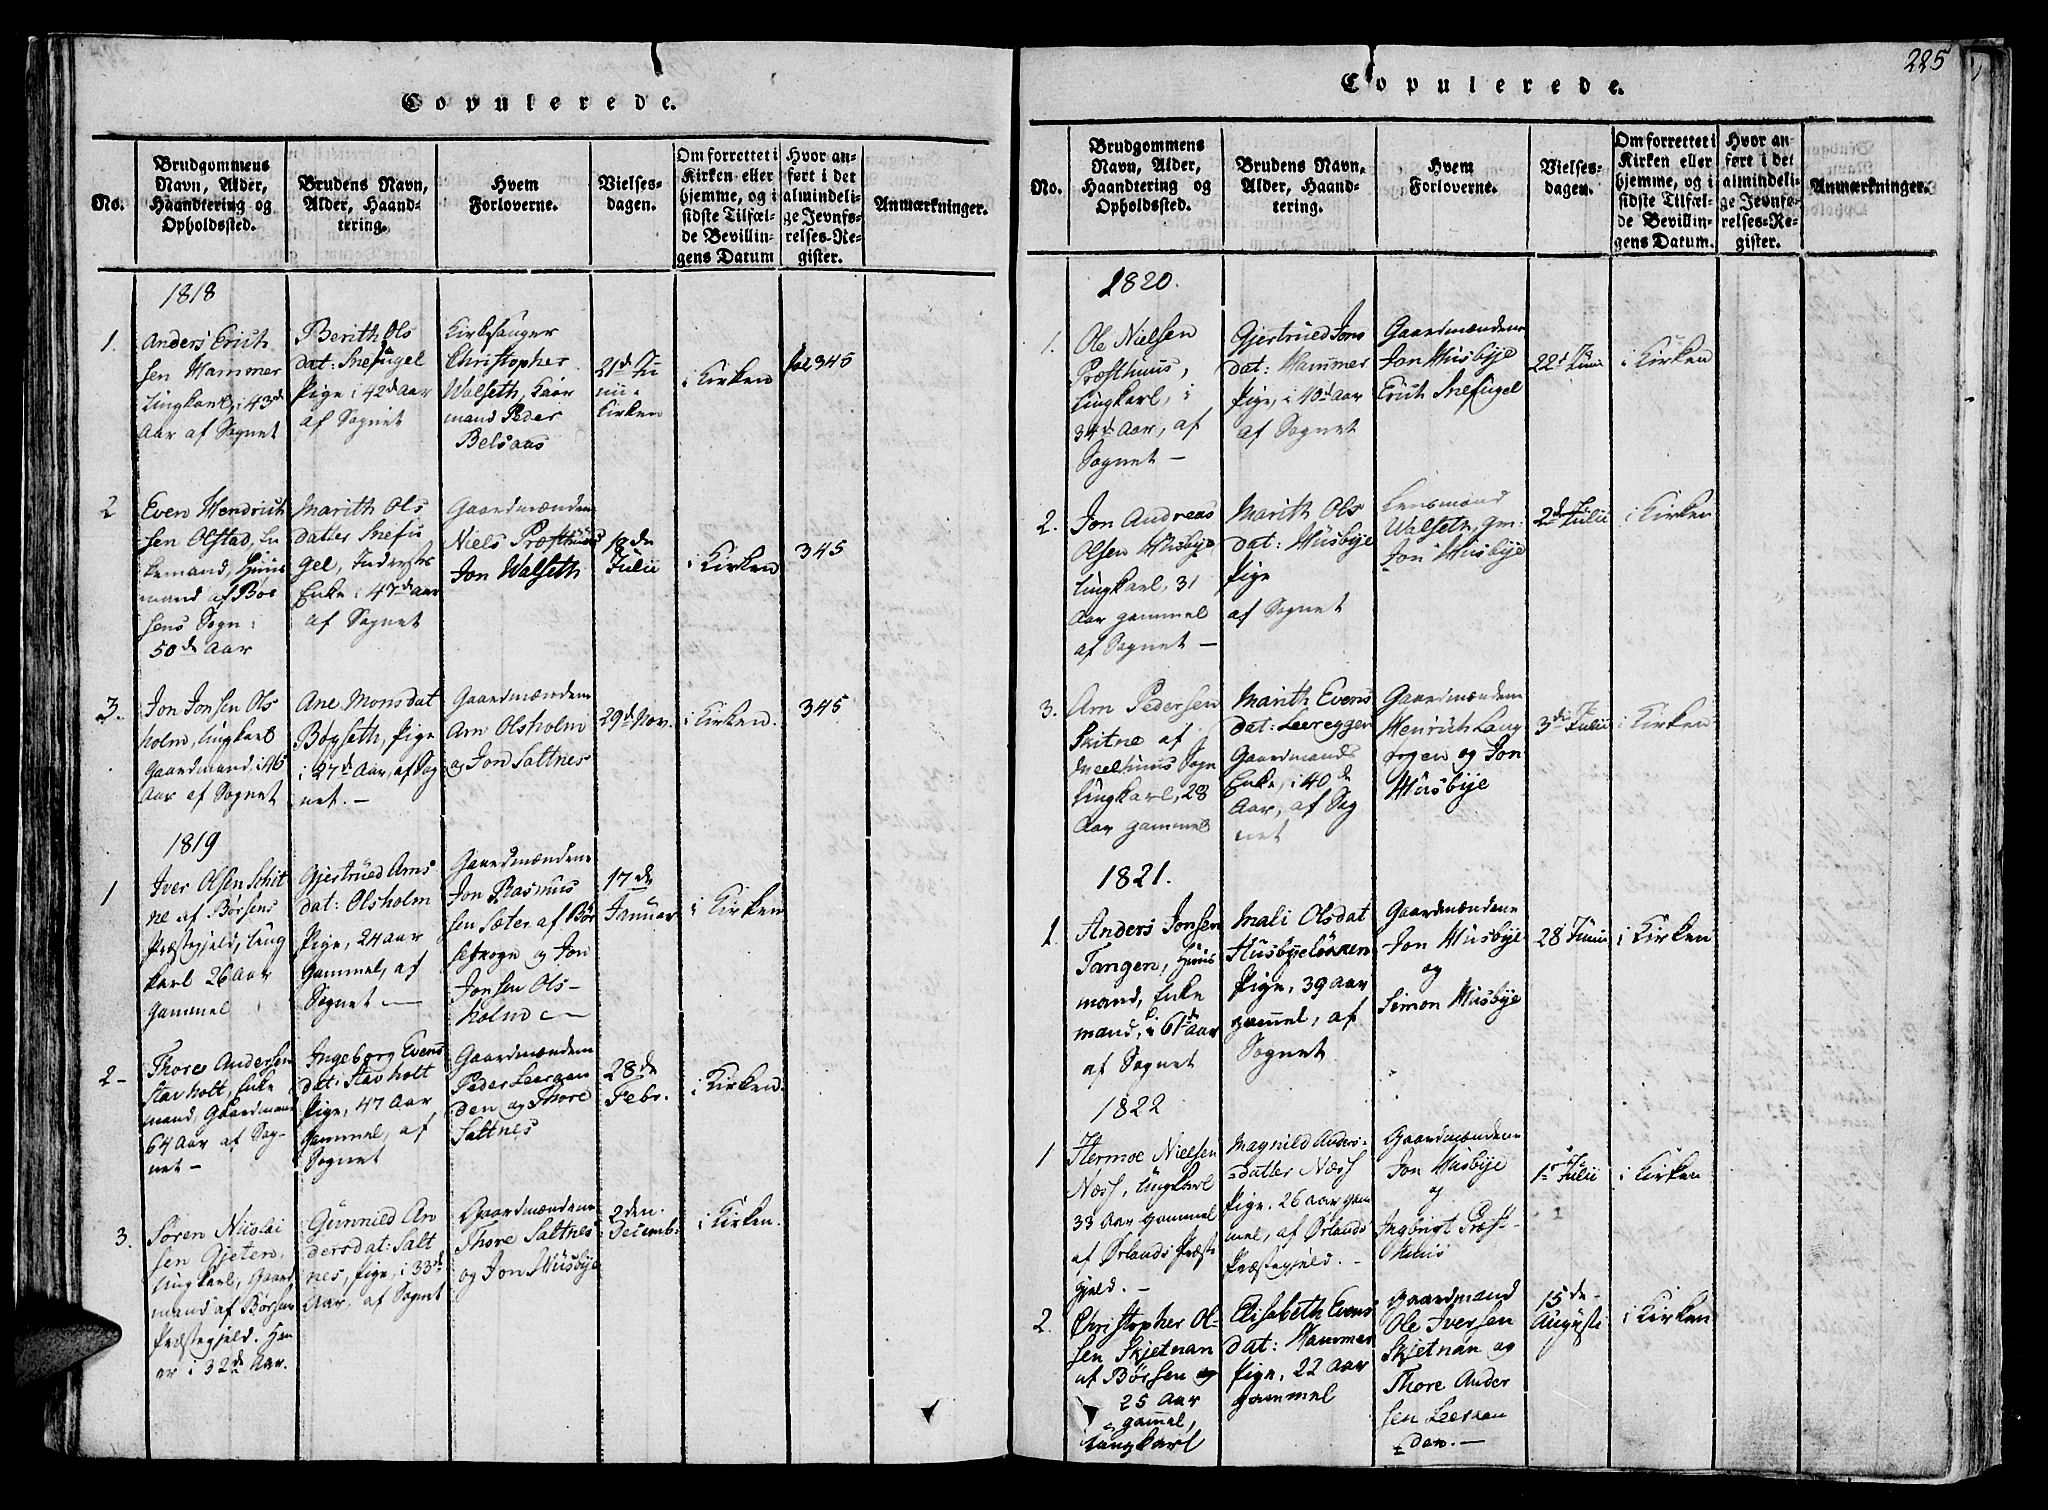 Copulerede.
No.
Brudgommens
Navn, Alder,
Haandtering og
Opholdssted.
Brudens Navn,
Alder, Haand-
tering.
Hvem
Forloverne.
Vielses-
dagen.
Om forrettet i
Kirken eller
hjemme, og i
sidste Tilfæl-
de Bevillin-
gens Datum
Hvor an-
ført i det
almindeli-
ge Jevnfø-
relses-Re-
gister.
Anmærkninger.
1818
1.
Anders Erich
sen Hammer
Ungkarl, i 43de
Aar af Sognet
Berith Ols
dat: Snefugel
Pige i 42de Aar
af Sognet
Kirkesanger
Christopher
Walseth, Gaar
mand Peder
Belsaas
21de Ju
nii
Kirken
i Kirken
fol 345
2
Even Hendrich
sen Olstad, En
kemand, Huus
mand af Bør
sens Sogn:
50de Aar
Marith Ols
datter Snefu
gel, Inderstes
Enke i 47de Aar
af Sognet
Gaardmændene
Niels Præsthuus
Jon Walseth
Julii
i Kirken
345
3.
Jon Jonsen Ols
holm, Ungkarl
Gaardmand, i 46
Aar af Sognet
Ane Monsdat
Bøgseth, Pige
i 27de Aar, af Sog
net. –
Gaardmændene
Arn Olsholm
og Jon Saltnes
29de Nov.
i Kirken.
345
1819
1
Iver Olsen Schit
ne af Børsens
Præstegjeld, Ung
karl 26 Aar
Gammel
Gjertrued Arns
dat: Olsholm
Pige, 24 Aar
Gammel, af
Sognet –
Gaardmændene
Jon Rasmus
sen Sæter af Bør
sesogn og Jon
Jonsen Ols-
holm –
17de
Januar
i Kirken
2-
Thore Andersen
Stavholt, Enke
mand, Gaardmand
64 Aar af Sog-
net –
Ingeborg Evens
dat: Stavholt
Pige, 47 Aar
Gammel, af
Sognet
Gaardmændene
Peder Leeraan
den og Thore
Saltnes
28de
Febr.
i Kirken.
3.
Søren Nicolai
sen Gjeten,
Ungkarl, Gaard
mand af Børsen
Præstegjeld. Han
er i 32de Aar.
Gunnild An
dersdat: Salt
nes, Pige, i 33de
Aar, af Sognet
Gaardmændene
Thore Saltnes
og Jon Husbye
2den
Decemb:
i Kirken.
225
Copulerede.
No.
Brudgommens
Navn, Alder,
Haandtering og
Opholdssted.
Brudens Navn,
Alder, Haand-
tering.
Hvem
Forloverne.
Vielses-
dagen.
Om forrettet i
Kirken eller
hjemme, og i
sidste Tilfæl-
de Bevillin-
gens Datum.
Hvor an-
ført i det
almindeli-
ge Jevnfø-
relses-Re-
gister.
Anmærkninger.
1820.
1.
Ole Nielsen
Præsthuus,
Ungkarl, i
34de Aar, af
Sognet –
Gjertrued Jons
dat: Hammer
Pige, i 40de Aar
af Sognet
Gaardmændene
Jon Husbye
Erich Snefugel
22de Junii
i Kirken
2.
Jon Andreas
Olsen Husbye
Ungkarl, 31
Aar gammel
af Sognet –
Marith Ols
dat: Husbye
Pige
af Sognet
Lensmand
Walseth, Gm:
Jon Husbye
2de Julii
i Kirken
3.
Arn Pedersen
Skitne af
Meelhuus Sogn
Ungkarl, 28
Aar gammel
Marith Evens
dat: Leereggen
Gaardmands
Enke, i 40de
Aar, af Sog
net
Gaardmændene
Henrich Lang
Jon
Husbye
3die Julii
i Kirken
1821.
1.
Anders Jonsen
Tangen, Huus
mand, Enke
mand, i 61de Aar
af Sognet
Mali Olsdat
Husbyeløkken
Pige, 39 Aar
gammel, af
Sognet
Gaardmændene
Jon Husbye
og
Simon Husbye
28 Junii
i Kirken
1822
1
Hermoe Nielsen
Næss, Ungkarl
33 Aar gammel
af Ørlands Præste
gjeld. –
Magnild Anders-
datter Næss
Pige, 26 Aar gam
mel, af Ørlands
Præstegjeld. –
Gaardmændene
Jon Husbye
og
Ingbrigt Præst-
huus
1ste Julii
i Kirken
2.
Christopher Ol-
sen Skjetnan
af Børsen og
25 Aar
gammel,
Ungkarl
Elisabeth Evens
dat: Hammer
Pige, 22 Aar
gammel
Gaardmand
Ole Iversen
Skjetnan og
Thore Ander
sen Leeraan
den. –
15de
Augusti
i Kirken